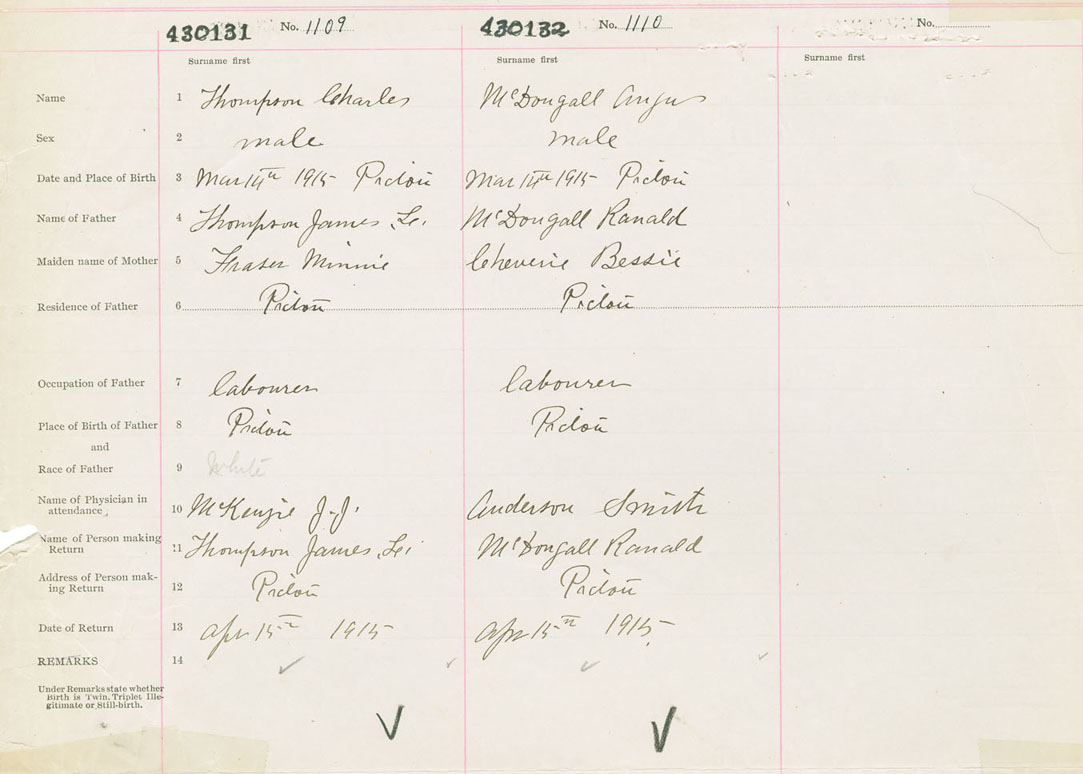 430131 No. 1109 430132 No. 1110 No.
Surname first Surname first Surname first
Name 1 Thompson Charles McDougall Angus
Sex 2 male male
Date and Place of Birth 3 Mar 14th 1915 Pictou Mar 14th 1915 Pictou
Name of Father 4 Thompson James McDougall Ranald
Maiden name of Mother 5 Fraser Minnie Cheverie Bessie
Residence of Father 6 Pictou Pictou
Occupation of Father 7 labourer labourer
Place of Birth of Father 8 Pictou Pictou
and
Race of Father 9 White
Name of Physician in
attendance, 10 McKenzie J. J. Anderson Smith
Name of Person making
Return 11 Thompson James McDougall Ranald
Address of Person mak-
ing Return 12 Pictou Pictou
Date of Return 13 Apr 15th 1915 Apr 15th 1915
REMARKS 14
Under Remarks state whether
Birth is Twin, Triplet Ille-
gitimate or Still-birth.